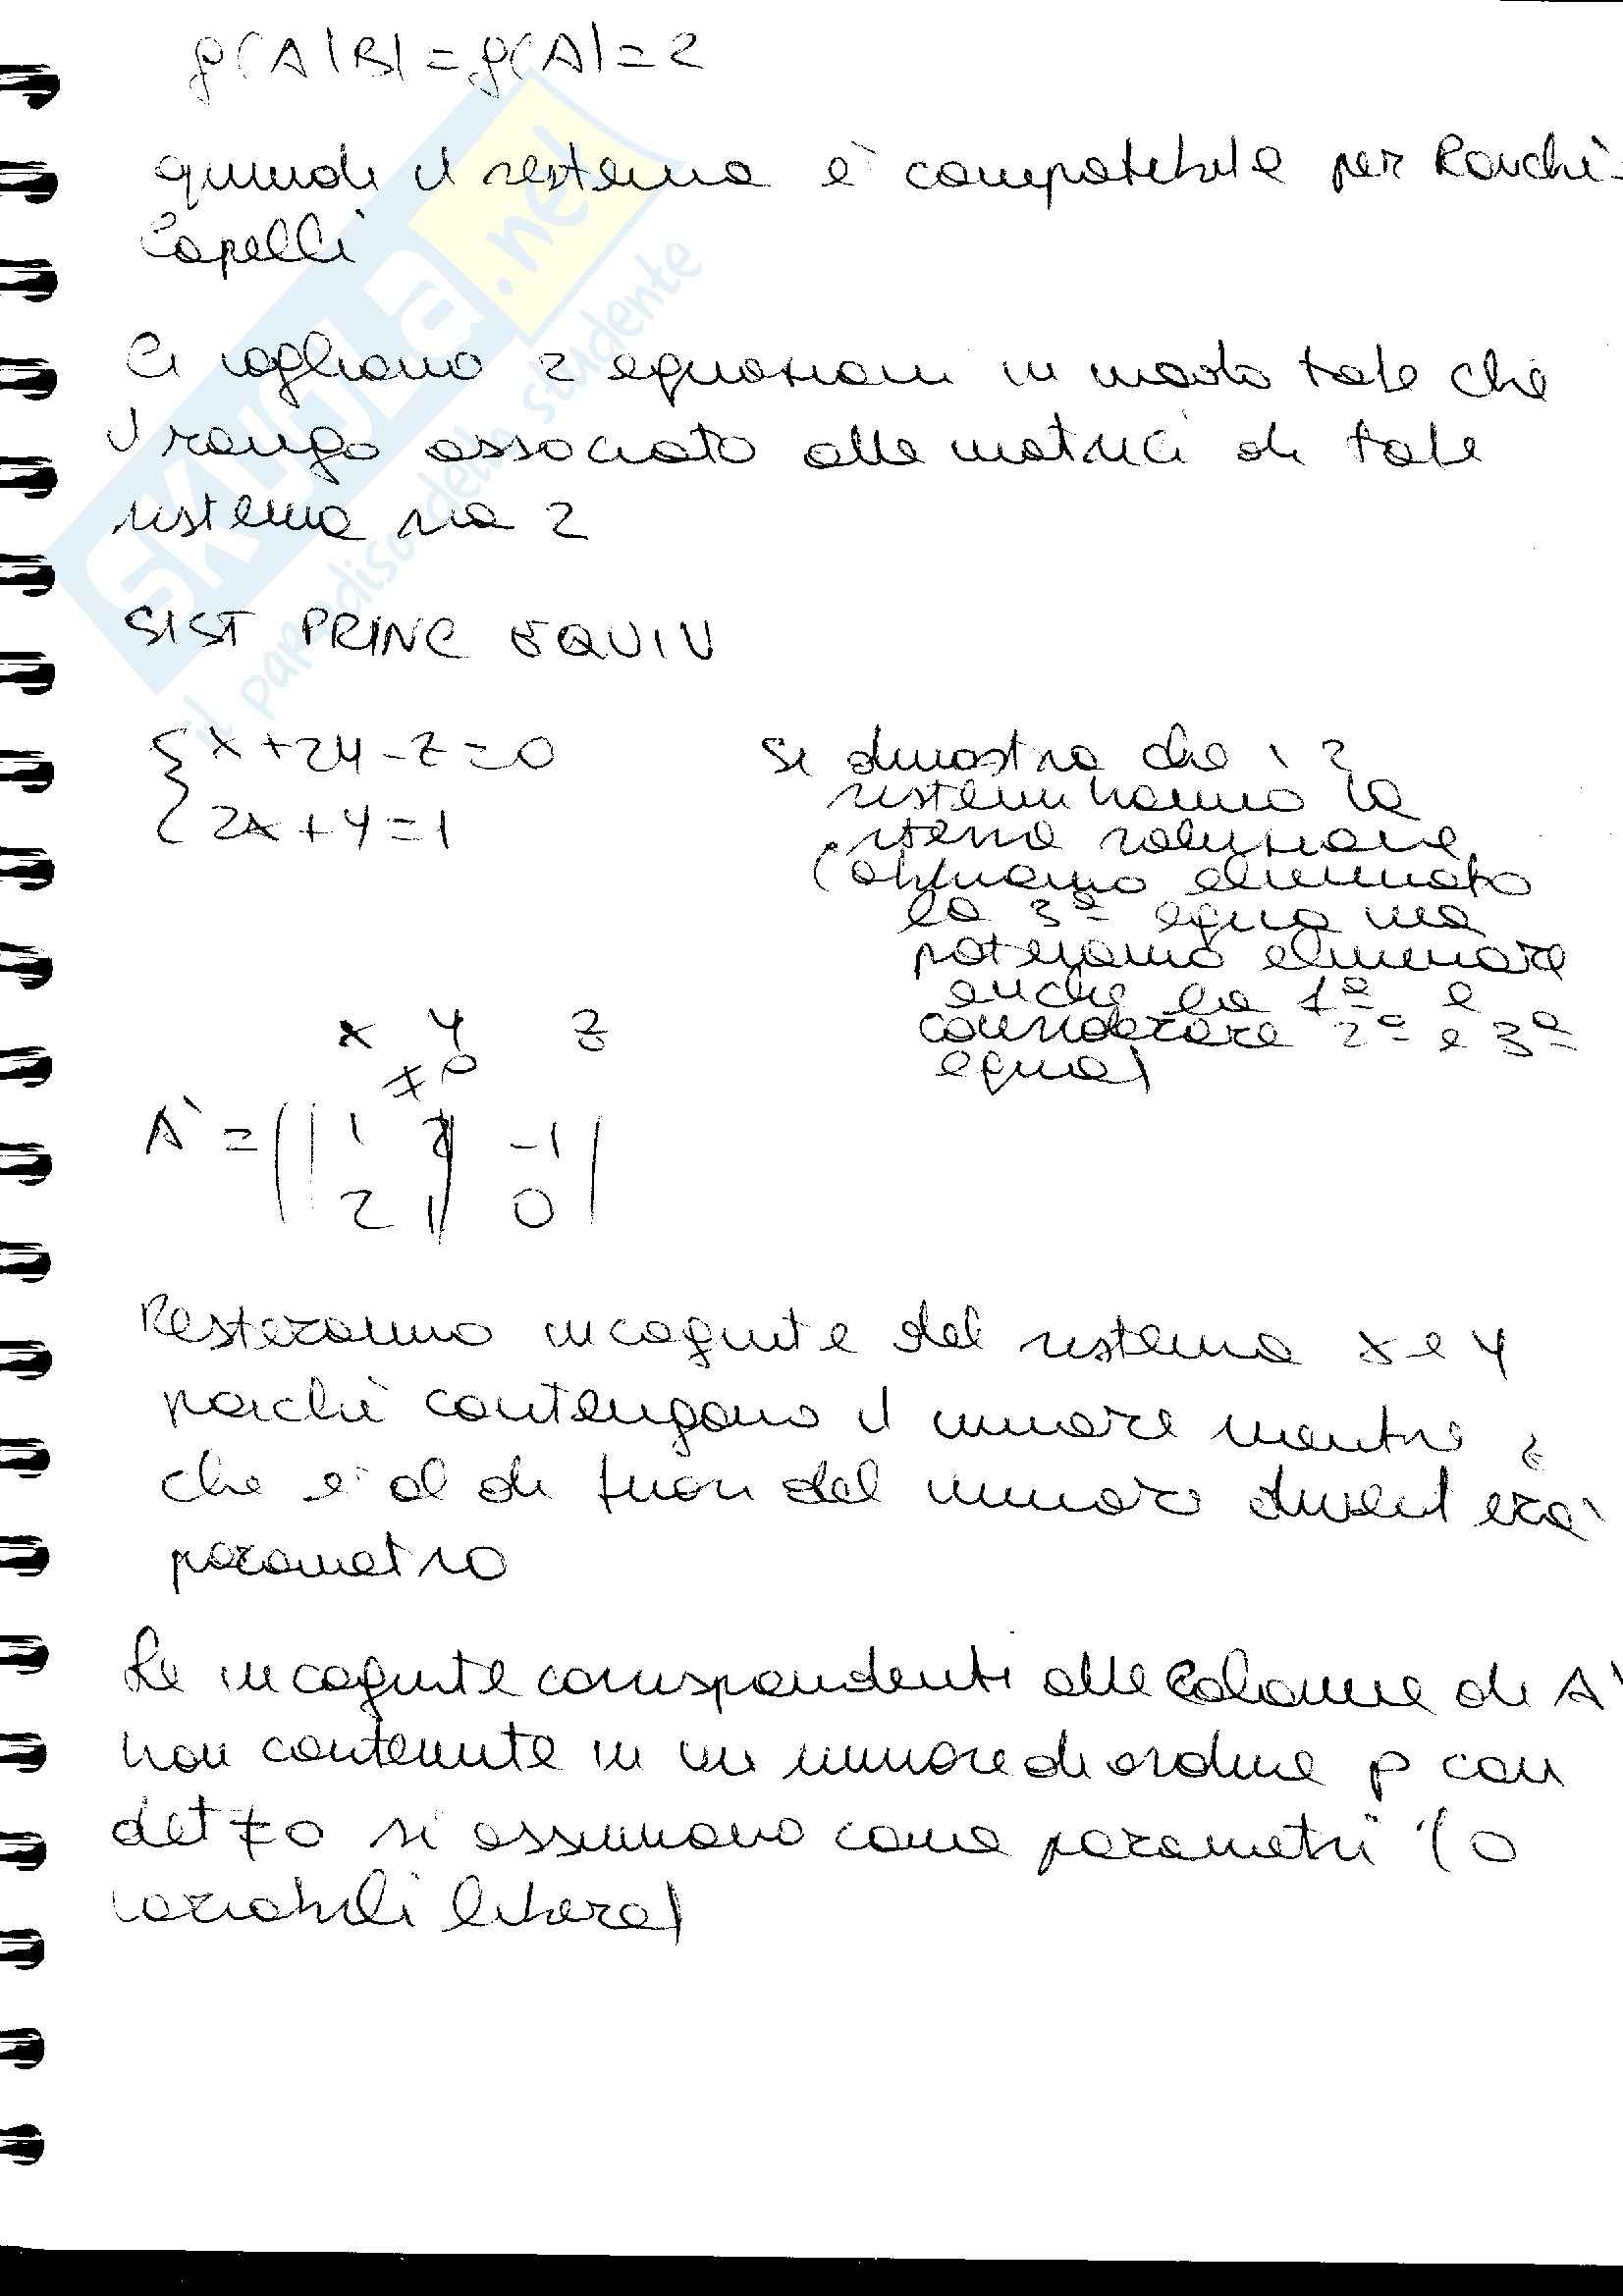 ρ(A|B)=ρ(A)=2
quindi il sistema è compatibile per Rouchè-
Capelli
Ci vogliono 2 equazioni in modo tale che
il rango associato alle matrici di tale
sistema sia 2
SIST PRINC EQUIV
{ x+2y-z=0
2x+y=1
Si dimostra che i 2
sistemi hanno la
stessa soluzione
(abbiamo eliminato
la 3ª equa ma
potevamo eliminare
anche la 1ª e
considerare 2ª e 3ª
equa)
x y z
≠0
A' = (| 1 2 | -1)
2 1 | 0
Resteranno incognite del sistema x e y
poichè contengono il minore mentre z
che è al di fuori del minore diventerà
parametro
Le incognite corrispondenti alle colonne di A'
non contenute in un minore di ordine p con
det≠0 si assumono come parametri (o
variabili libere)
SKUOLA.net
il paradiso dello studente